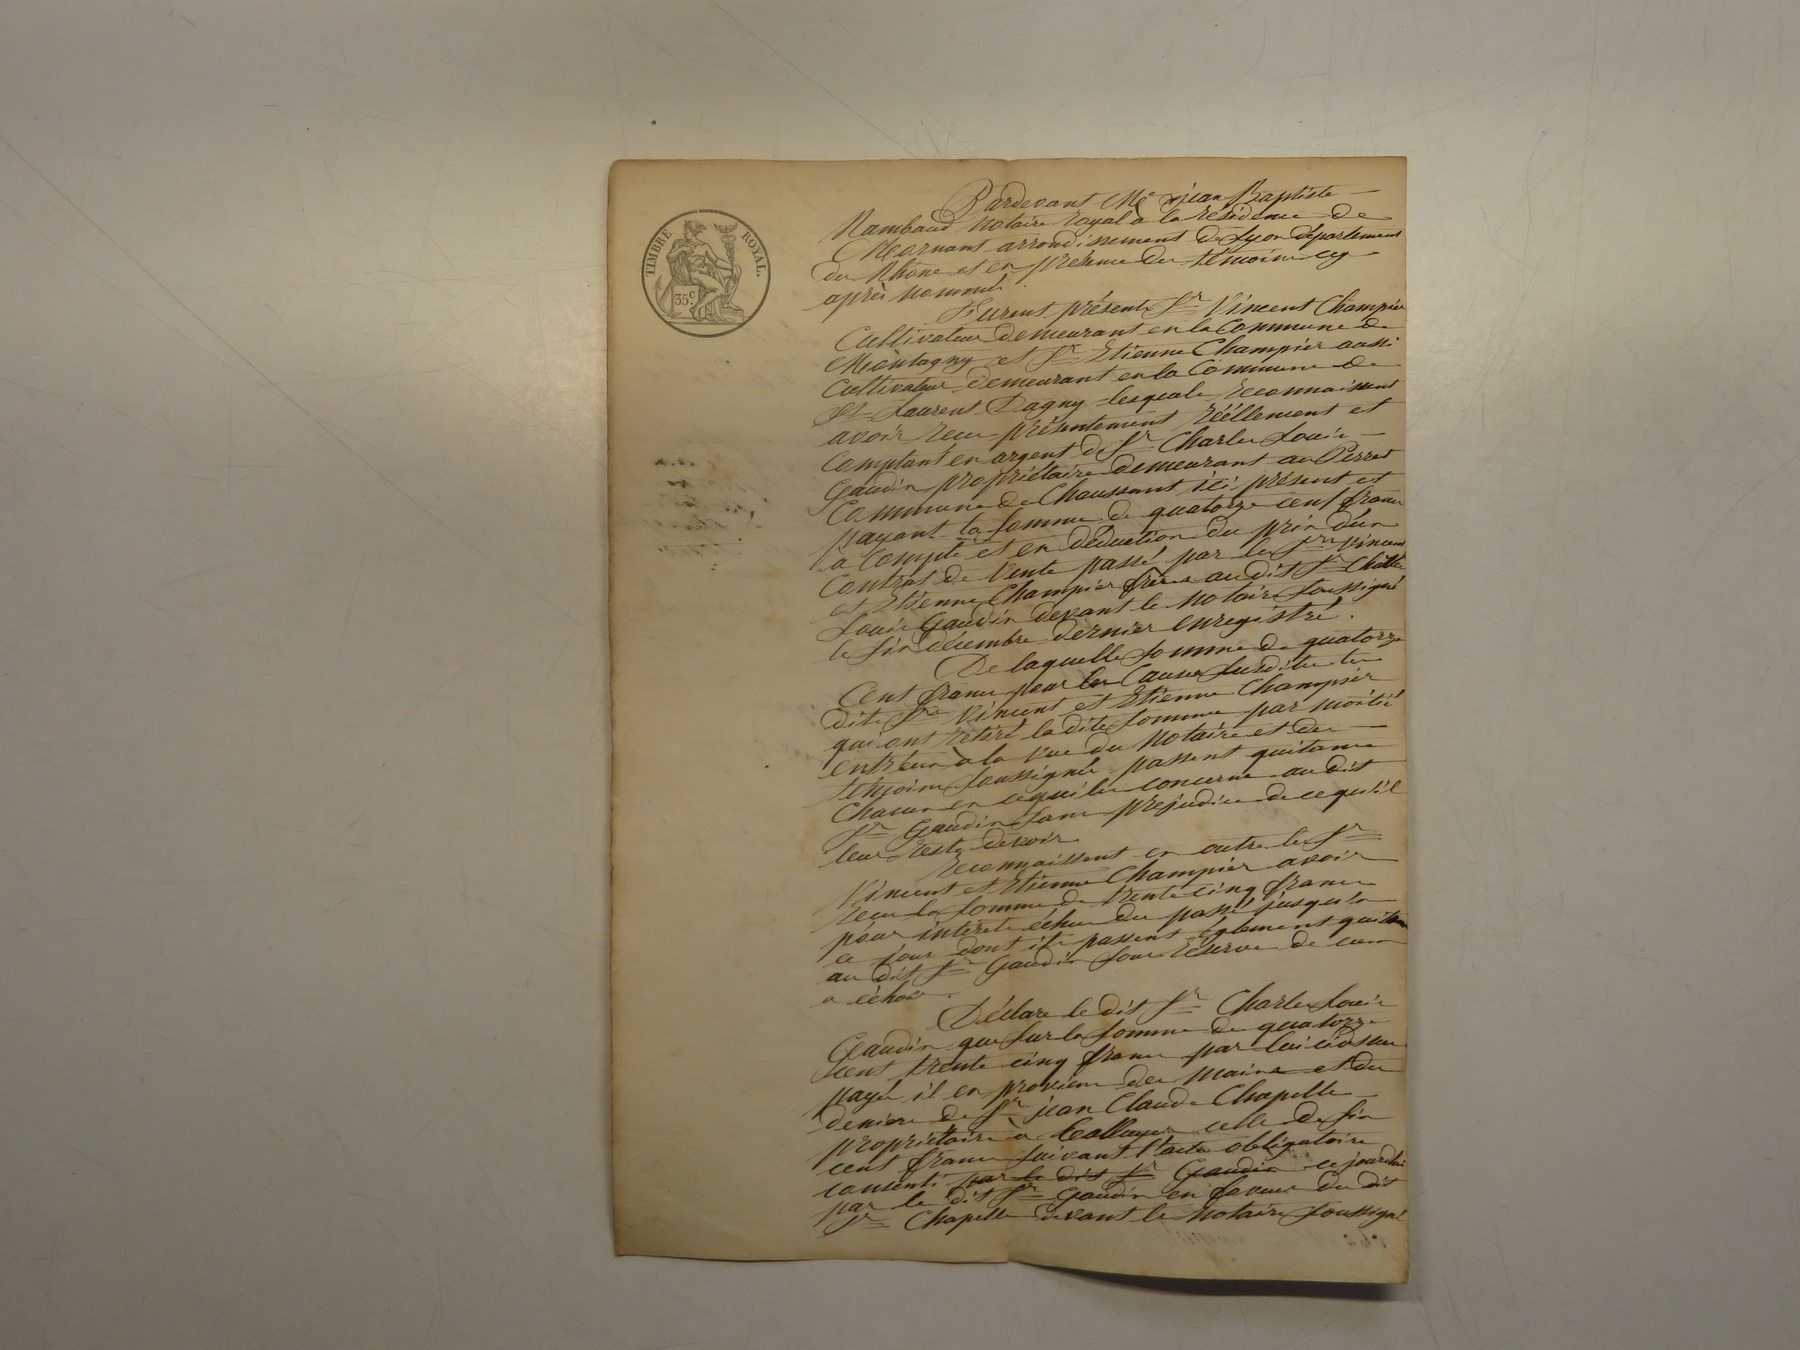 TIMBRE ROYAL.
35c
Pardevant Me jean Baptiste
Rambaud Notaire royal à la résidence de
Mornant arrondissement de Lyon département
du Rhône et en présence des témoins cy
après nommés.
Furent présents Sr Vincent Champier
Cultivateur demeurant en la Commune de
Montagny et Sr Etienne Champier aussi
Cultivateur demeurant en la Commune de
St Laurent Dagny lesquels reconnaissent
avoir recu présentement réellement et
comptant en argent de Sr Charles Louis
Gaudin propriétaire demeurant au Perret
Commune de Chaussant ici présent et
payant la somme de quatorze cent francs
à compte et en déduction du prix d'un
Contrat de Vente passé par les Srs Vincent
et Etienne Champier frères au dit Sr Charles
Louis Gaudin devant le Notaire soussigné
le six décembre dernier enregistré.
De laquelle somme de quatorze
Cent francs pour les Causes susdites les
dits Srs Vincent et Etienne Champier
qui ont retiré la dite somme par moitié
entr'eux à la vue du Notaire et des
témoins soussignés passent quitance
Chacun en ce qui les concerne au dit
Sr Gaudin sans préjudice de ce qu'il
leur reste devoir.
reconnaissent en outre les Sr
Vincent et Etienne Champier avoir
recu la somme de trente cinq francs
pour intérêts échus du passé jusqu'à
ce jour dont ils passent également quittance
au dit Sr Gaudin sous réserve de ceux
a échoir.
Déclare le dit Sr Charles Louis
Gaudin que sur la somme de quatorze
cent trente cinq francs par lui cidessus
payés il en provient des mains et des
deniers de Sr jean Claude Chapelle
propriétaire à Talluyers celle de six
cent francs suivant l'acte obligatoire
consenti par le dit Sr Gaudin ce jourdhui
par le dit Sr Gaudin en faveur du dit
Sr Chapelle devant le Notaire soussigné